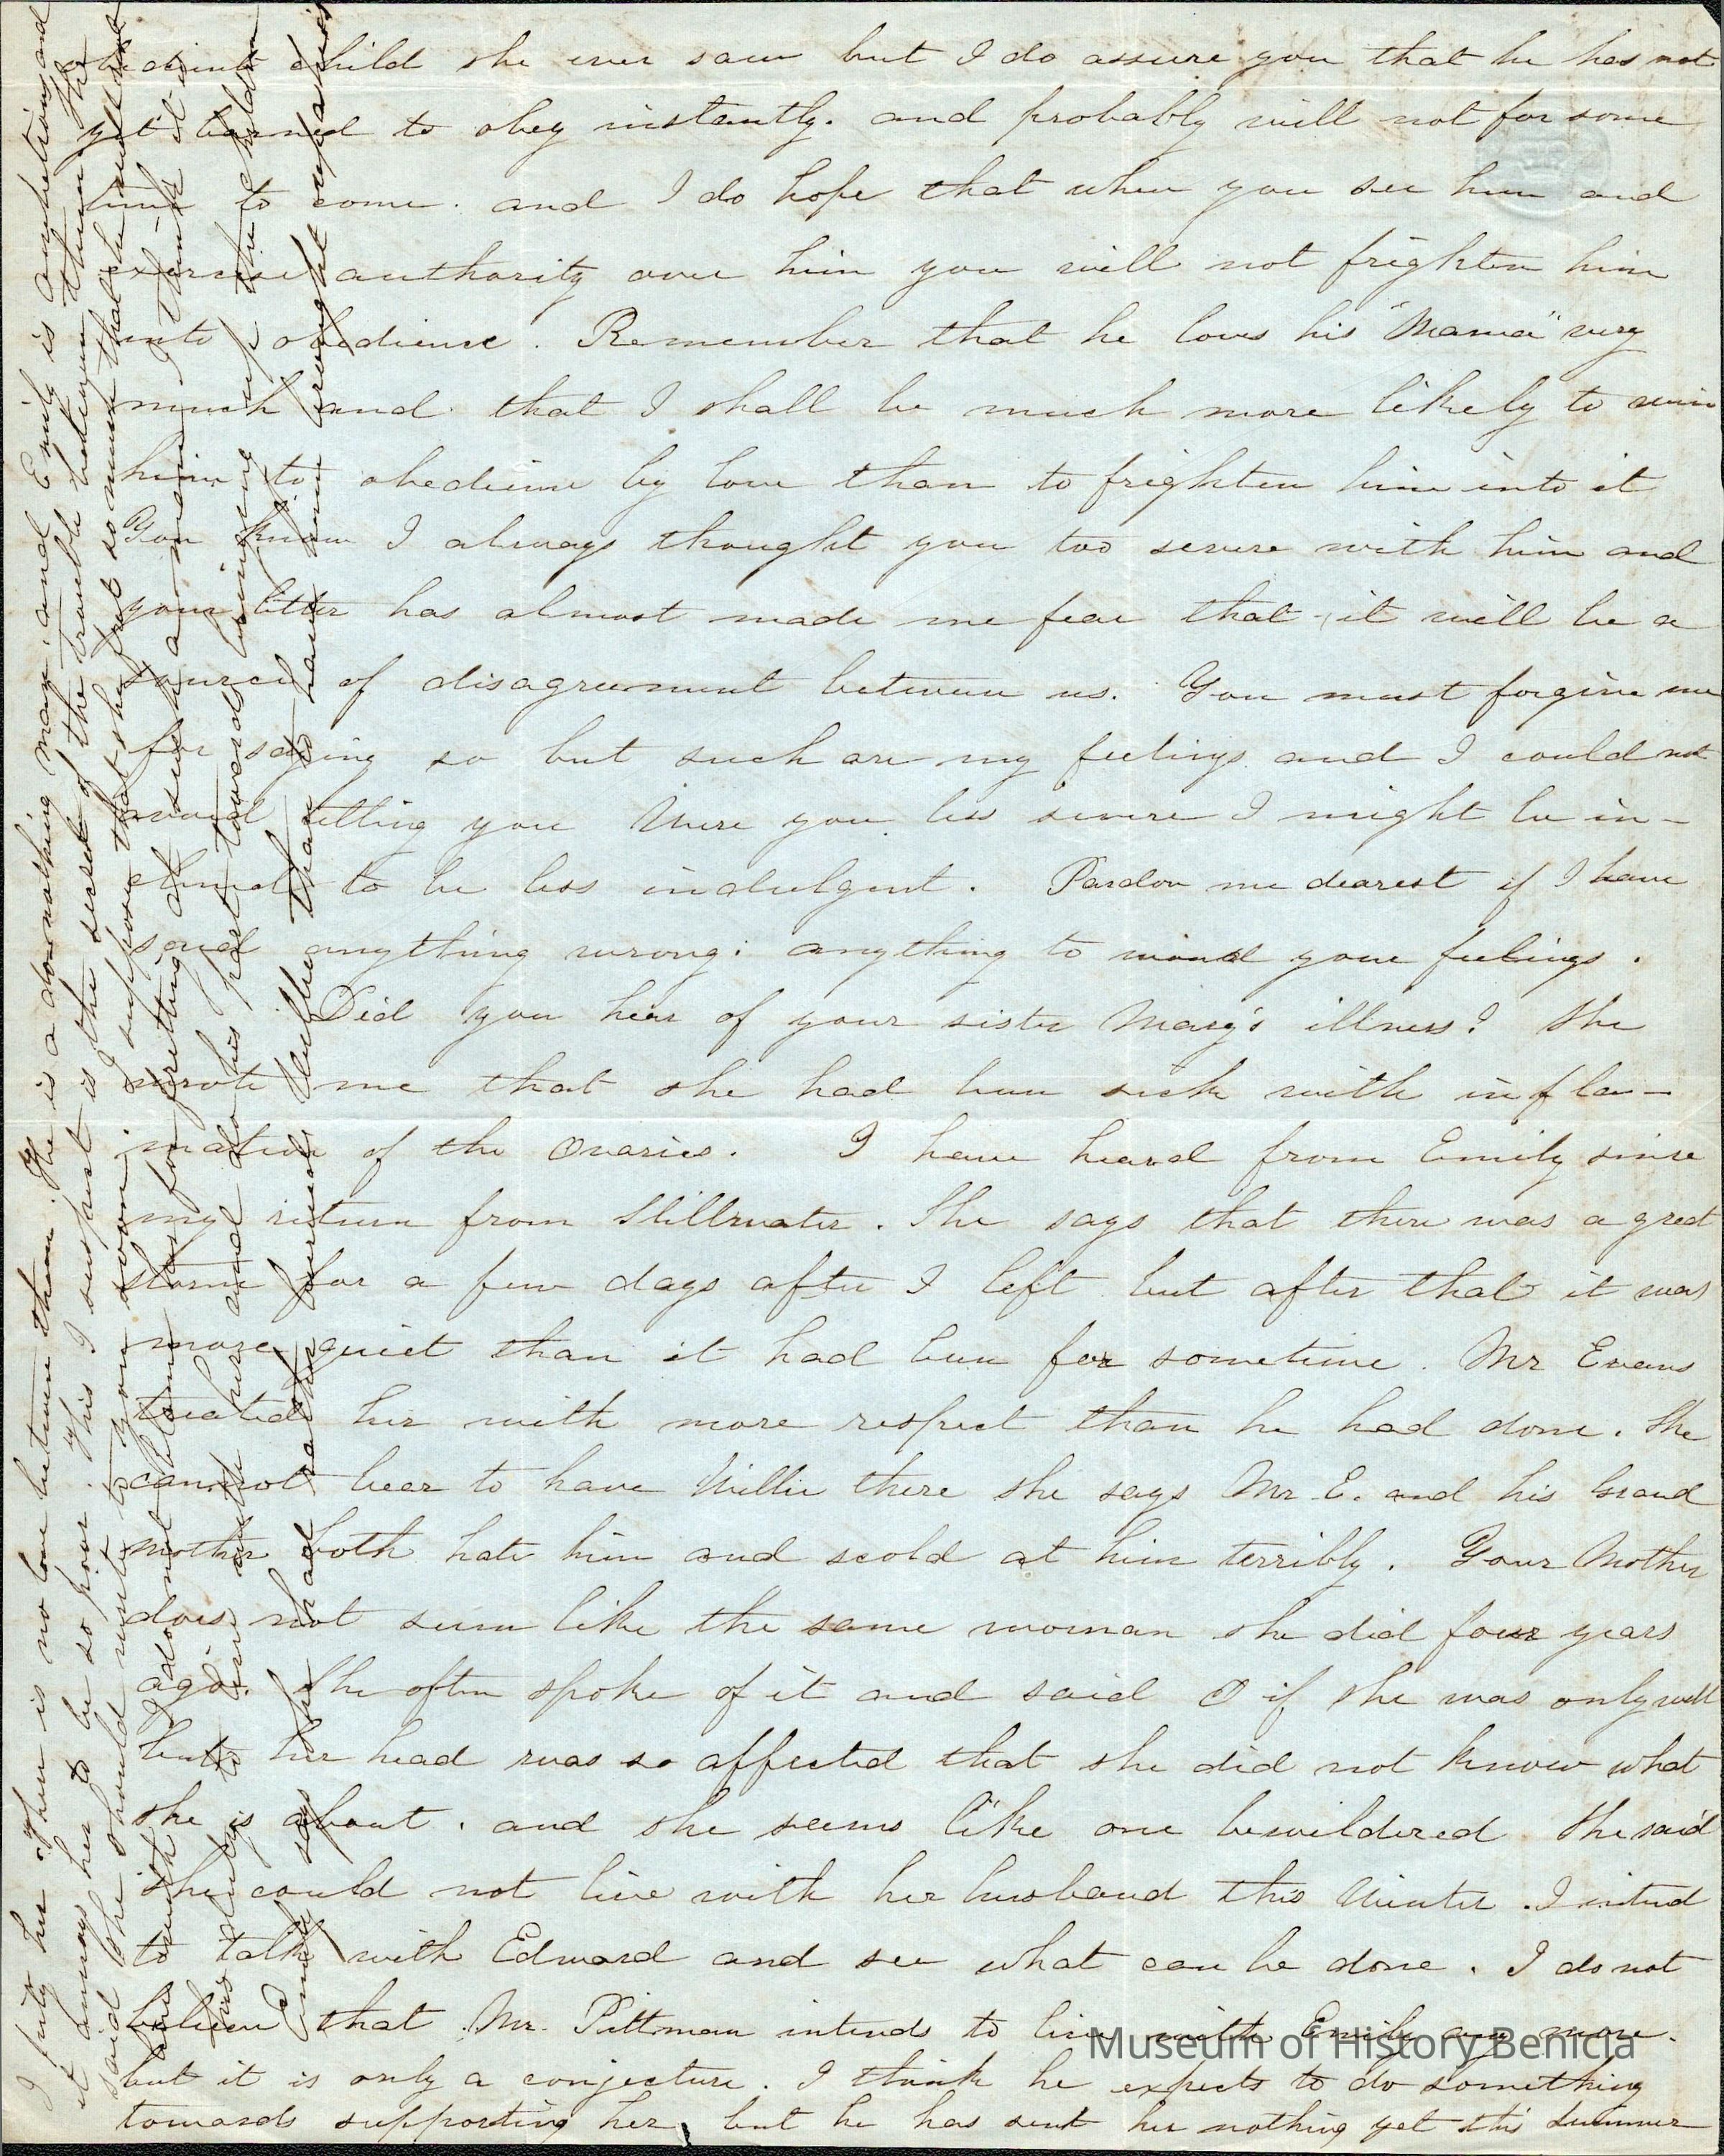 obedient child she ever saw but I do assure you that he has not
yet learned to obey instantly. and probably will not for some
time to come. and I do hope that when you see him and
exercise authority over him you will not frighten him
into obedience. Remember that he loves his "Mama" very
much and that I shall be much more likely to win
him to obedience by love than to frighten him into it
You know I always thought you too severe with him and
your letter has almost made me fear that it will be a
source of disagreement between us. You must forgive me
for saying so but such are my feelings and I could not
avoid telling you Were you less severe I might be in-
clined to be less indulgent. Pardon me dearest if I have
said anything wrong: anything to wound your feelings.
Did you hear of your sister Mary's illness? She
wrote me that she had been sick with infla-
mation of the ovaries. I have heard from Emily since
my return from Stillwater. She says that there was a great
storm for a few days after I left but after that it was
more quiet than it had been for sometime. Mr Evans
treated her with more respect than he had done. She
cannot bear to have Willie there she says Mr. E. and his Grand
mother both hate him and scold at him terribly. Your Mother
does not seem like the same woman she did four years
ago. She often spoke of it and said O if she was only well
but her head was so affected that she did not know what
she is about. and she seems like one bewildered She said
she could not live with her husband this Winter. I intend
to talk with Edward and see what can be done. I do not
believe that Mr. Pittman intends to live with Emily any more.
but it is only a conjecture. I think he expects to do something
towards supporting her, but he has sent her nothing yet this summer
I pity her. There is no love between them. He is a do-nothing man, and Emily is ambitious and
it annoys her to be so poor. This I suspect is the secret of the trouble between them. She
said she should write to you soon. I suppose that she fret so much that he
truth I do not blame her for fretting at such a man. I think it is
his duty to live with her and do his part towards bringing up the children
Emily says she had rather furnish Willie than to have him brought up as he is
Museum of History Benicia